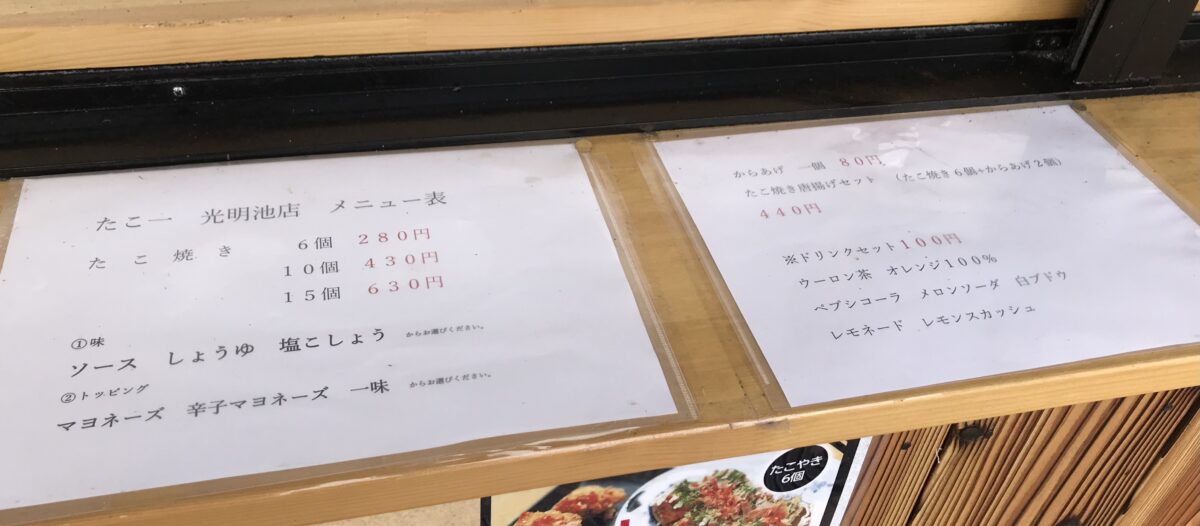 たこ一 光明池店 メニュー表
たこ焼き 6個 280円
10個 430円
15個 630円
①味
ソース しょうゆ 塩こしょう からお選びください。
②トッピング
マヨネーズ 辛子マヨネーズ 一味 からお選びください。
からあげ 一個 80円
たこ焼き唐揚げセット (たこ焼き6個+からあげ2個)
440円
※ドリンクセット100円
ウーロン茶 オレンジ100%
ペプシコーラ メロンソーダ 白ブドウ
レモネード レモンスカッシュ
たこやき
6個